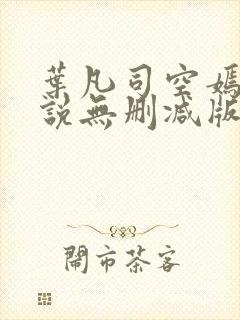 葉凡司空嫣
說無删减版
鬧市茶客